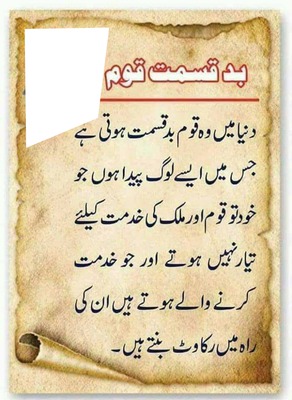 بد قسمت قوم
دنیا میں وہ قوم بدقسمت ہوتی ہے
جس میں ایسے لوگ پیدا ہوں جو
خود تو قوم اور ملک کی خدمت کیلئے
تیار نہیں ہوتے اور جو خدمت
کرنے والے ہوتے ہیں ان کی
راہ میں رکاوٹ بنتے ہیں۔